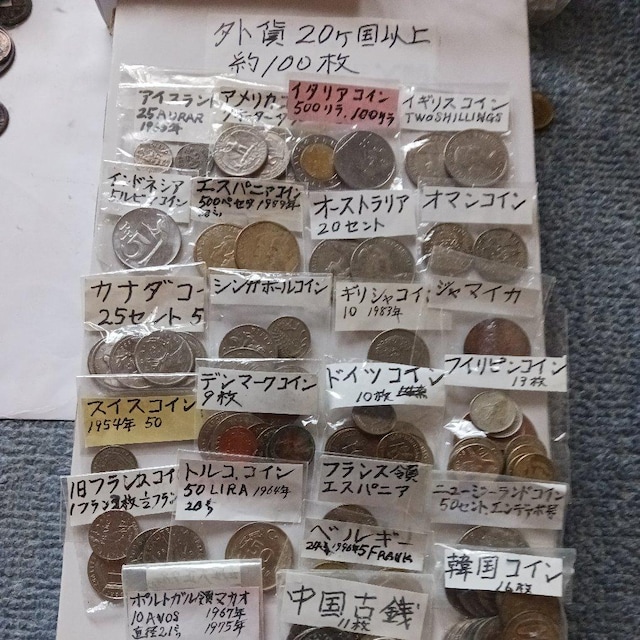 外貨20ヶ国以上
約100枚
アイスランド
25AURAR
アメリカ
クォーターダラ
イタリアコイン
500リラ.100リラ
イギリスコイン
TWOSHILLINGS
インドネシア
5ルピアコイン
エスパニアコイン
500ペセタ1989年
オーストラリア
20セント
オマンコイン
カナダコー
25セント 5
シンガポールコイン
ギリシャコイン
10 1983年
ジャマイカ
デンマークコイン
9枚
ドイツコイン
10枚
フイリピンコイン
13枚
スイスコイン
1954年 50
旧フランスコイ
トルコ、コイン
50 LIRA 1964年
フランス領
エスパニア
ニュージーランドコイン
50セント,エンデヂボ号
ベルギー
5FRANK
韓国コイン
16枚
ポルトガル領マカオ
10AVOS 1967年
直径21㍉ 1975年
中国古銭
11枚